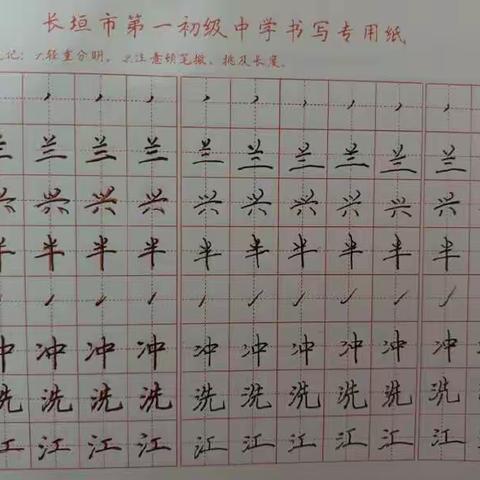 长垣市第一初级中学书写专用纸
记：1.轻重分明。2.注意顿笔撇、挑及长度。
丶丶丶丶丶丶丶丶丶
兰兰兰兰兰兰兰兰兰兰
兴兴兴兴兴兴兴兴兴兴
半半半半半半半半半半
㇀㇀㇀㇀㇀㇀㇀㇀㇀
冲冲冲冲冲冲冲冲冲冲
洗洗洗洗洗洗洗洗洗洗
江江江江江江江江江江